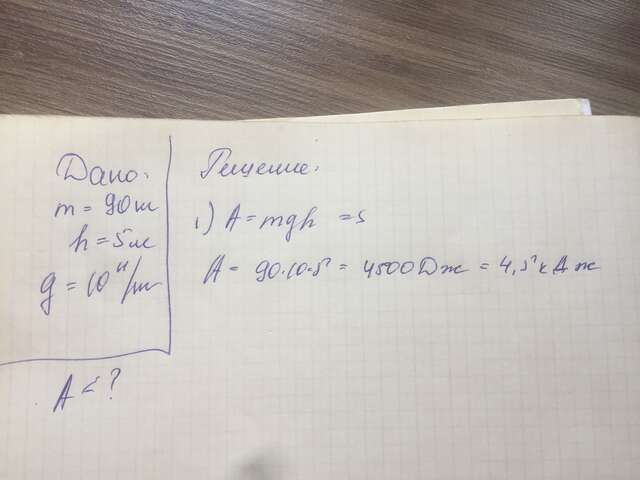 Дано:
m = 90 кг
h = 5 м
g = 10 Н/кг
A = ?
Решение:
1) A = mgh =>
A = 90·10·5 = 4500 Дж = 4,5 кДж